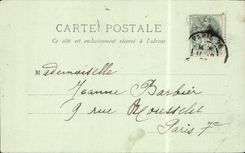 CARTE POSTALE
Ce côté est exclusivement réservé à l'adresse
Mademoiselle
Jeanne Barbier
9 rue Rousselet
Paris 7e